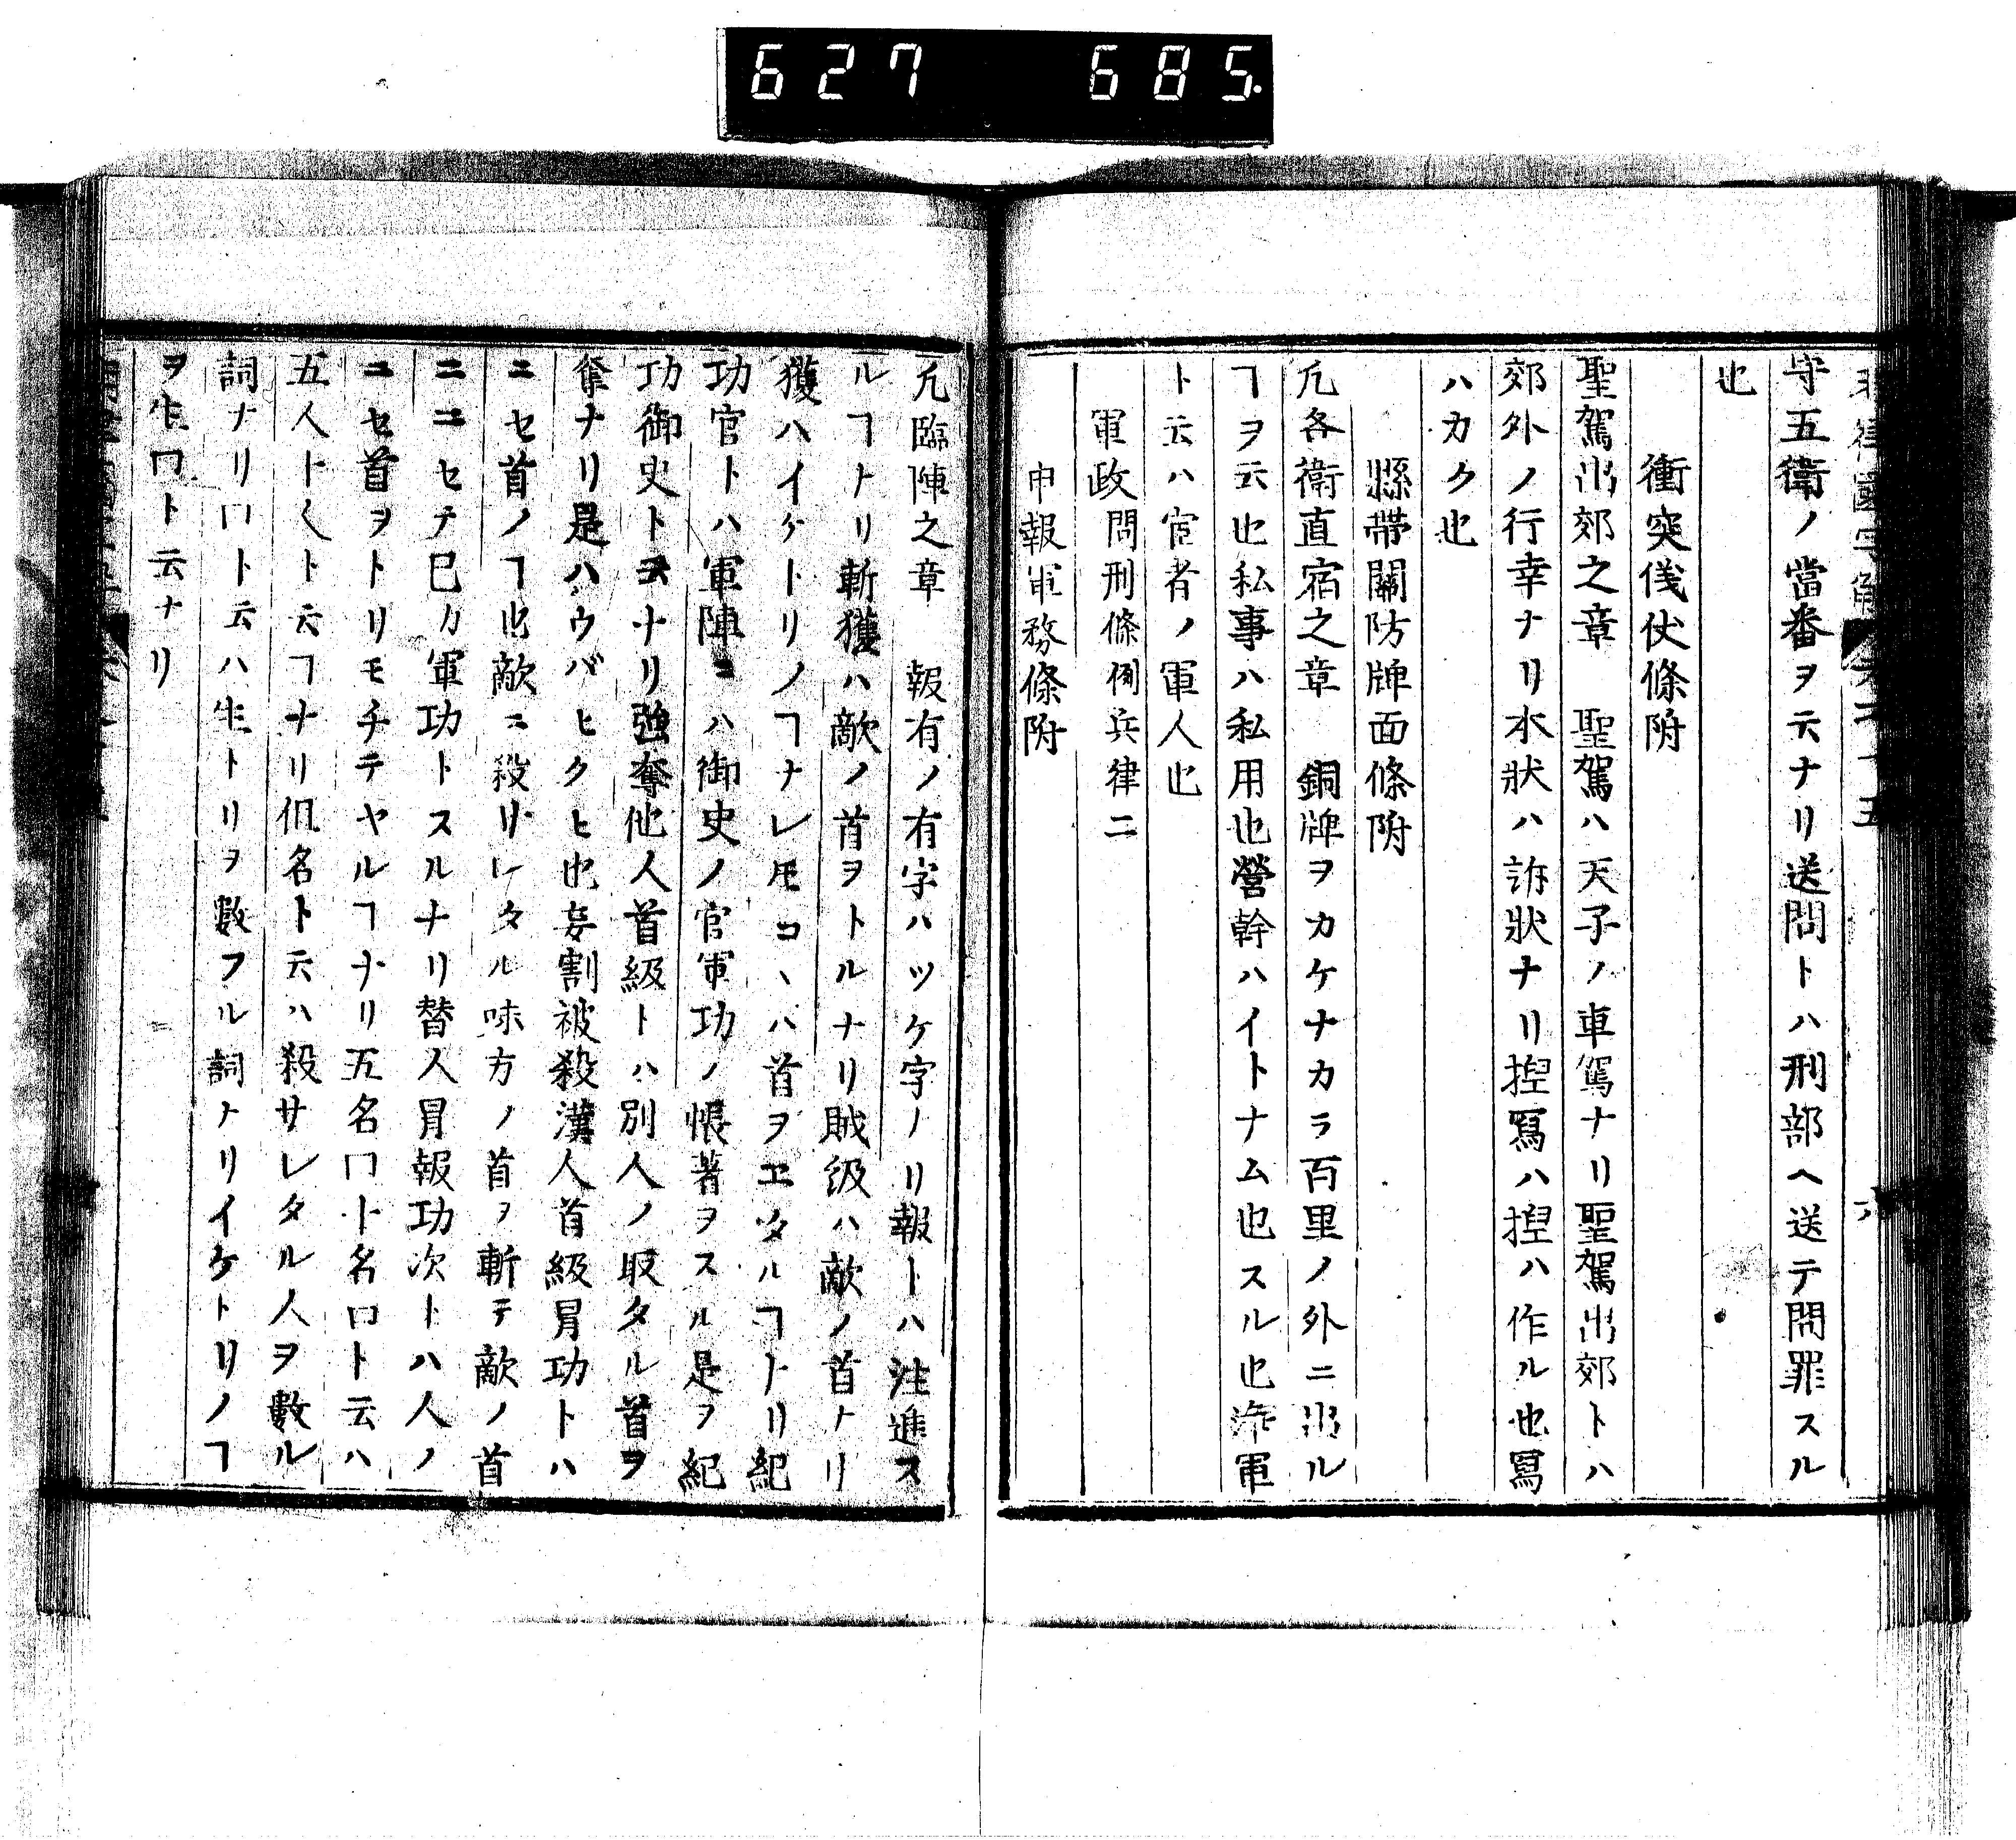 627 685.
守五衛ノ當番ヲ云ナリ送問トハ刑部ヘ送テ問罪スル
也
衝突儀仗條附
聖駕出郊之章　聖駕ハ天子ノ車駕ナリ聖駕出郊トハ
郊外ノ行幸ナリ本狀ハ訴狀ナリ揑寫ハ揑ハ作ル也寫
ハカク也
懸帶關防牌面條附
凢各衛直宿之章　銅牌ヲカケナカラ百里ノ外ニ出ル
ヿヲ云也私事ハ私用也營幹ハイトナム也スル也海軍
ト云ハ宦者ノ軍人也
軍政問刑條例兵律二
申報軍務條附
凢臨陣之章　報有ノ有字ハツケ字ノリ報トハ注進ス
ルヿトリ斬獲ハ敵ノ首ヲトルナリ賊級ハ敵ノ首ナリ
獲ハイケトリノヿナレ𪜈コヽハ首ヲヱタルヿトリ紀
功官トハ軍陣ニハ御史ノ官軍功ノ帳著ヲスル是ヲ紀
功御史ト云ナリ強奪他人首級トハ別人ノ取タル首ヲ
奪ナリ是ハウバヒクヒ也妄割被殺漢人首級冐功トハ
ニセ首ノヿ也敵ニ殺サレタル味方ノ首ヲ斬テ敵ノ首
ニニセテ巳カ軍功トスルナリ替人冐報功次トハ人ノ
ニセ首ヲトリモチテヤルヿナリ五名口ト名口ト云ハ
五人ト〱ト云ヿナリ但名ト云ハ殺サレタル人ヲ數ル
詞ナリ口ト云ハ生トリヲ數フル詞ナリイケトリノヿ
ヲ生口ト云ナリ